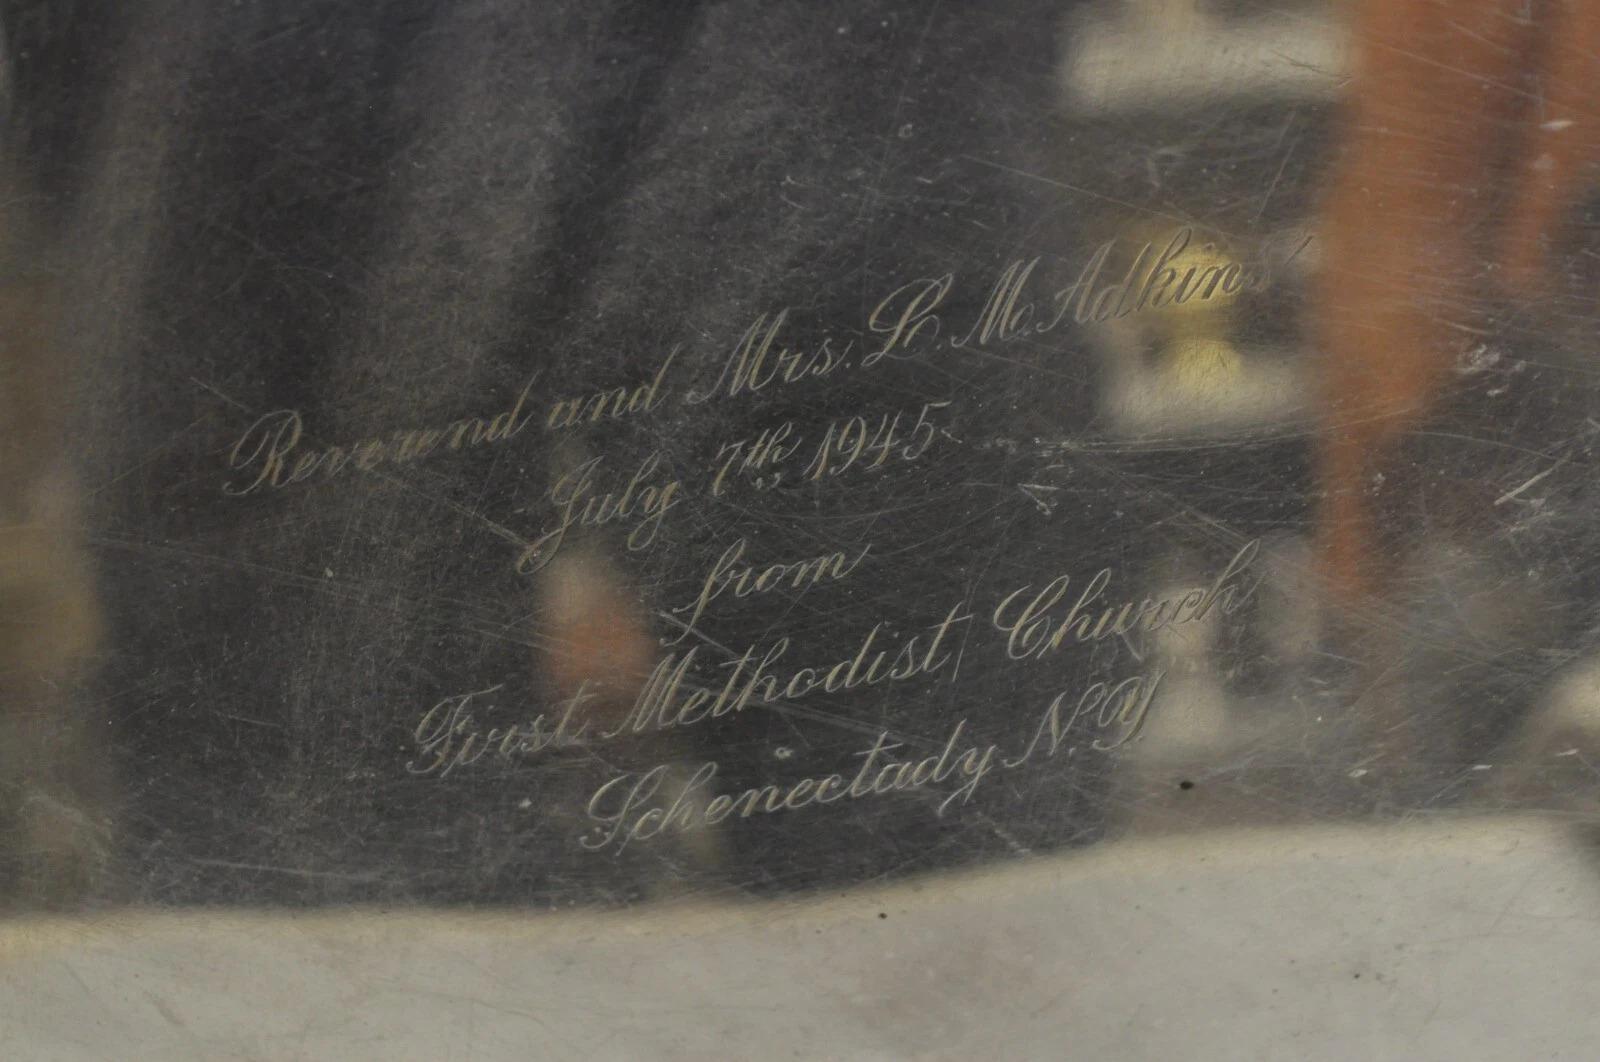 Reverend and Mrs. L. M. Adkins
July 7th, 1945
from
First Methodist Church
Schenectady N.Y.